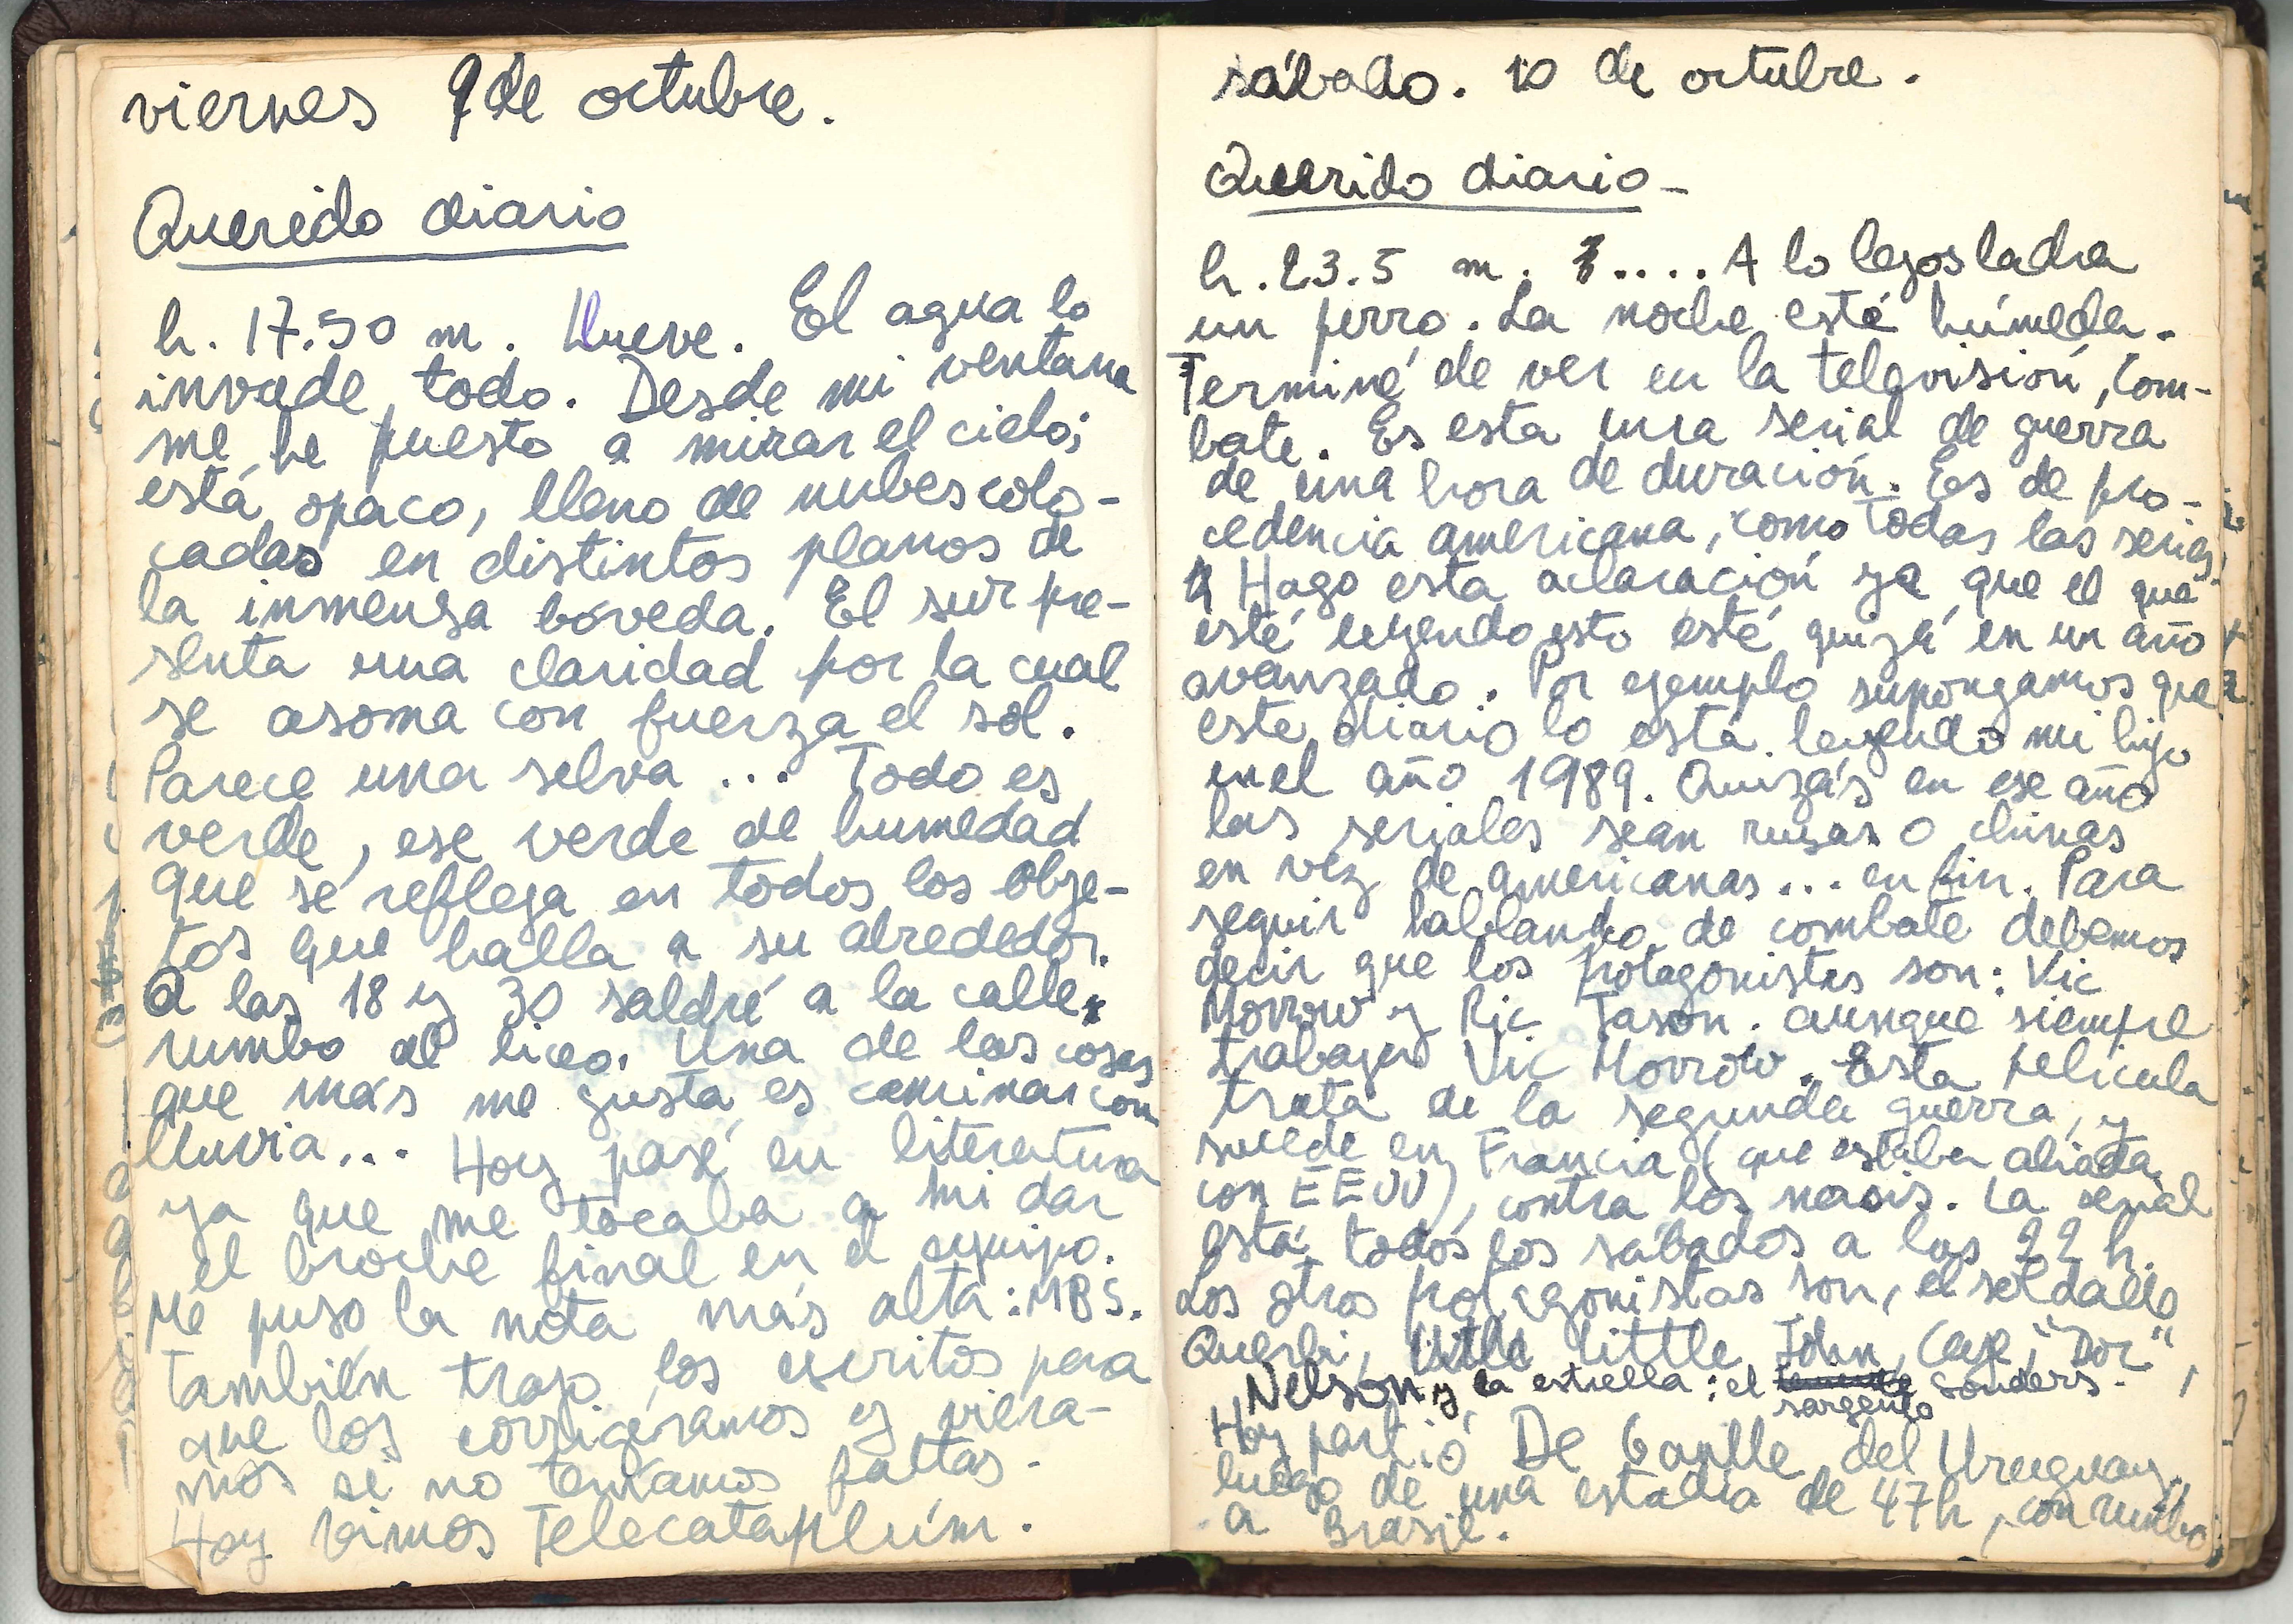 viernes 9 de octubre.
Querido diario
h. 17.50 m. Llueve. El agua lo
invade todo. Desde mi ventana
me he puesto a mirar el cielo;
está opaco, lleno de nubes colo-
cadas en distintos planos de
la inmensa bóveda. El sur pre-
senta una claridad por la cual
se asoma con fuerza el sol.
Parece una selva ... Todo es
verde, ese verde de humedad
que se refleja en todos los obje-
tos que halla a su alrededor.
A las 18 y 30 saldré a la calle
rumbo al liceo. Una de las cosas
que más me gusta es caminar con
lluvia... Hoy pasé en literatura
ya que me tocaba a mi dar
el broche final en el equipo.
Me puso la nota más alta: MBS.
También trajo los escritos para
que los corrigieramos y viera-
mos si no teníamos faltas.
Hoy vimos Telecataplúm.
sábado. 10 de octubre.
Querido diario -
h. 23.5 m. .... A lo lejos ladra
un perro. La noche está húmeda.
Terminé de ver en la televisión, Com-
bate. Es esta una serial de guerra
de una hora de duración. Es de pro-
cedencia americana, como todas las series.
Hago esta aclaración ya que el que
esté leyendo esto esté quizá en un año
avanzado. Por ejemplo supongamos que
este diario lo está leyendo mi hijo
en el año 1989. Quizás en ese año
las seriales sean rusas o chinas
en vez de americanas... en fin. Para
seguir hablando de combate debemos
decir que los protagonistas son: Vic
Morrow y Ric Jason. aunque siempre
trabaja Vic Morrow. Esta película
trata de la segunda guerra, y
sucede en Francia (que estaba aliada
con EEUU), contra los nasis. La serial
está todos los sábados a las 22 h.
Los otros protagonistas son, el soldado
Querbi, Little John, Caje, "Doc",
Nelson y la estrella: el sargento Sonders.
Hoy partió De Gaulle del Uruguay,
luego de una estadía de 47h, con rumbo
a Brasil.